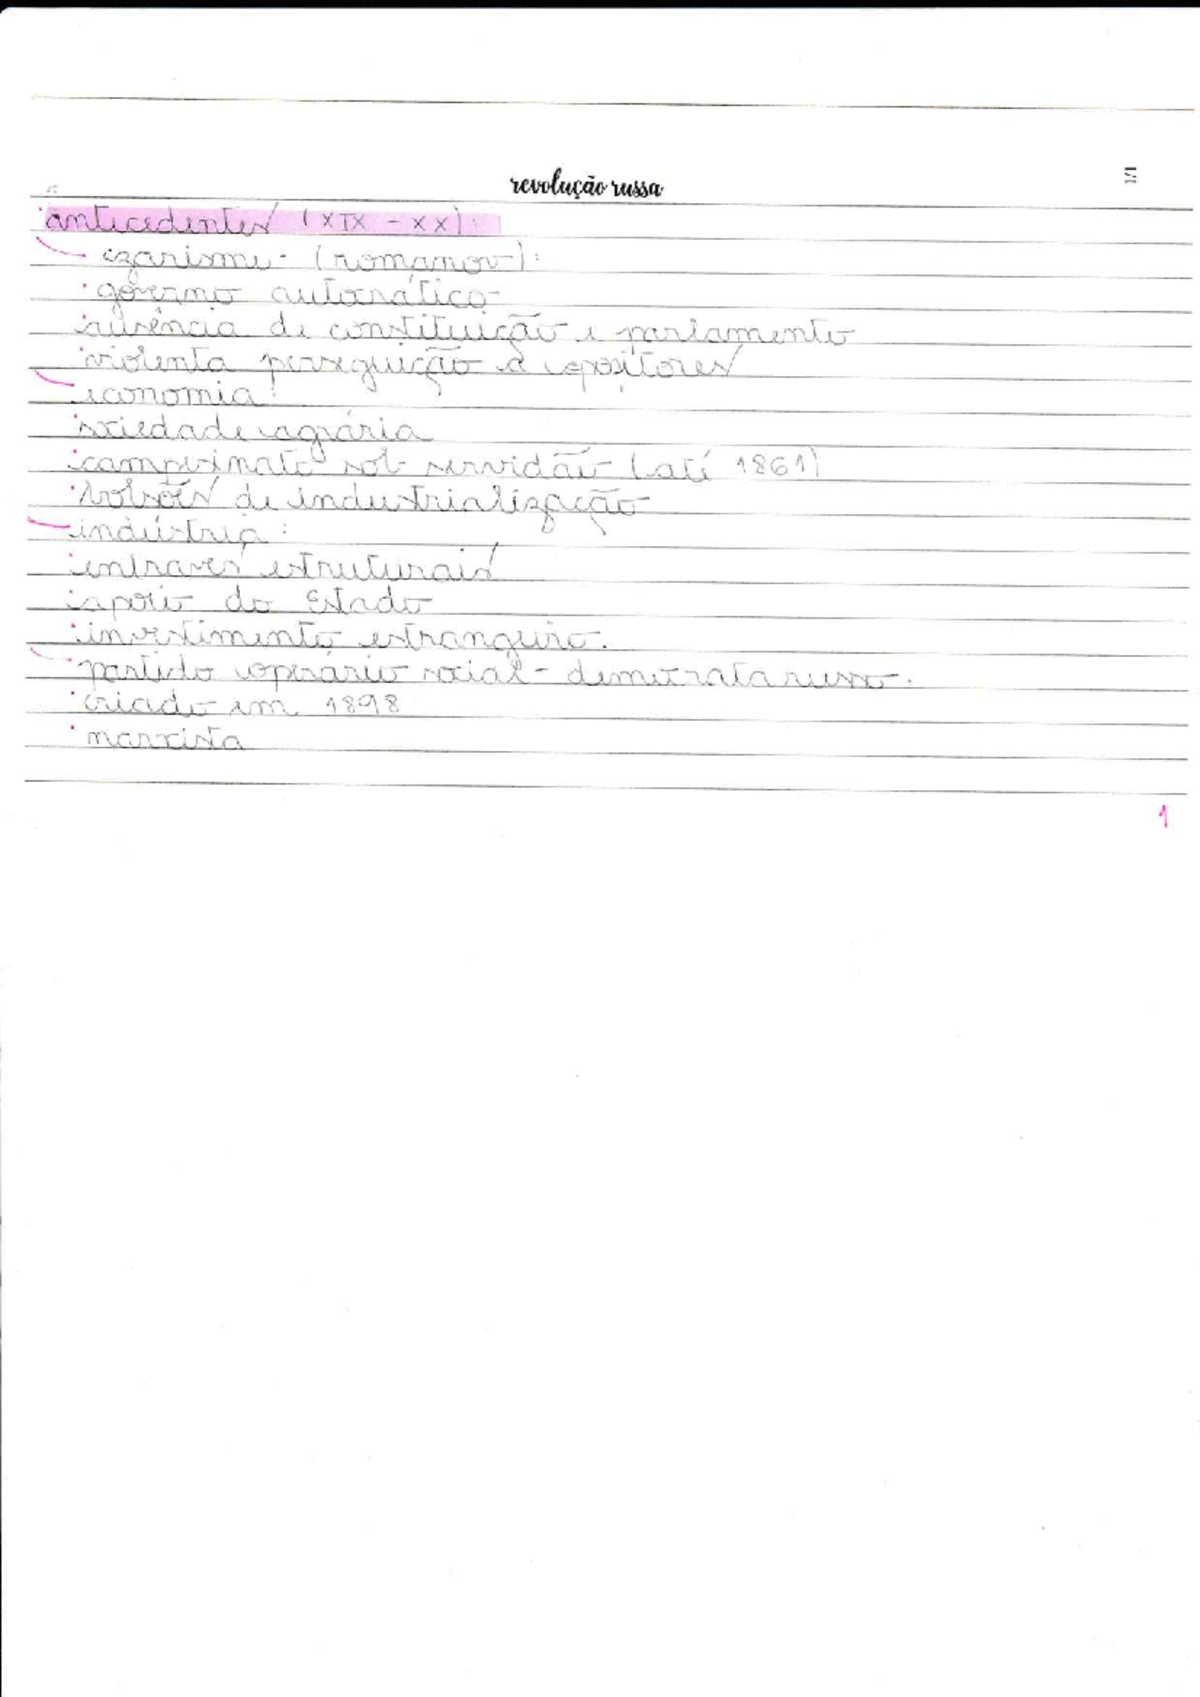 revolução russa
antecedentes (XIX - XX):
czarismo (romanov):
governo autocrático
ausência de constituição e parlamento
violenta perseguição a opositores
economia:
sociedade agrária
campesinato sob servidão (até 1861)
bolsões de industrialização
indústria:
entraves estruturais
apoio do Estado
investimento estrangeiro.
partido operário social-democrata russo.
criado em 1898
marxista
1